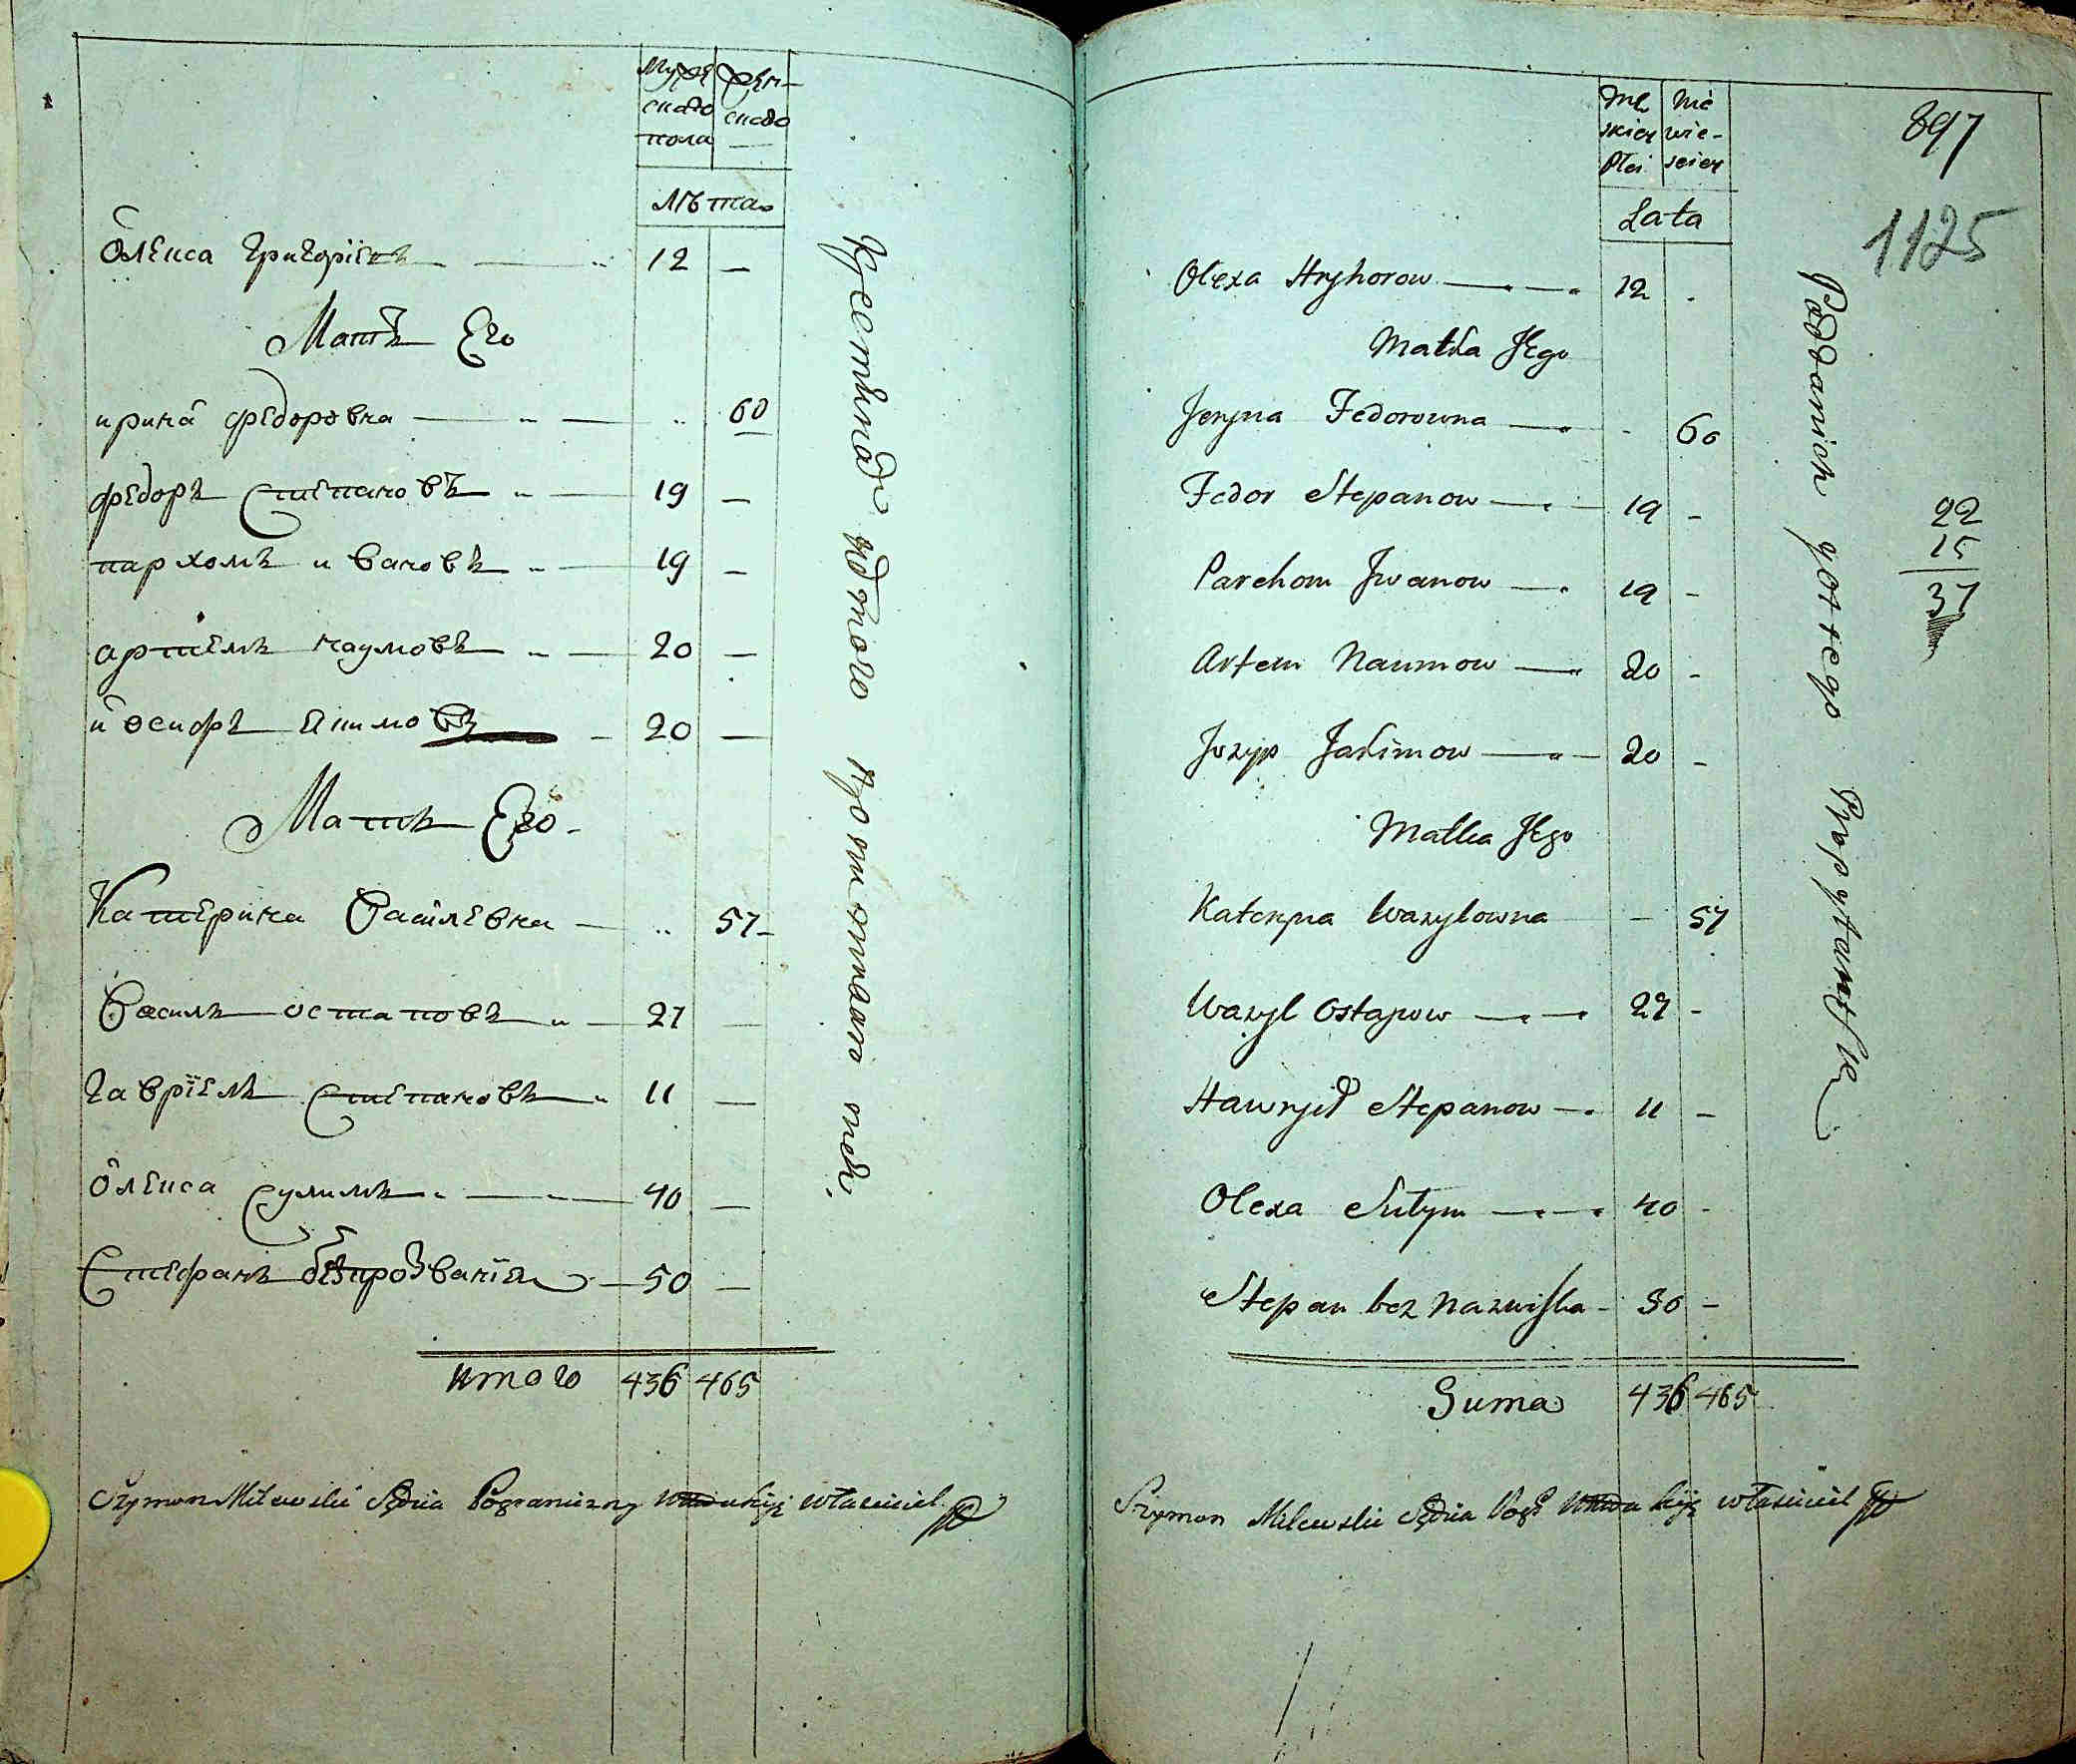 Мужескаго пола
Женскаго
Лѣта
Олекса Григоріевъ 12 —
Мать Его
ирина федоровна 60
федоръ Степановъ 19 —
пархомъ ивановъ 19 —
артемъ наумовъ 20 —
иосифъ Якимовъ 20 —
Мать Его
Катерина Василевна 57
Василь остаповъ 27 —
Гавріелъ Степановъ 11 —
Олекса Сулимъ 40 —
Стефанъ безпрозванія 50 —
итого 436 465
Szymon Milewski Sędzia Pograniczny właściciel
Męskiej Płci
Niewieściej
Lata
897
1125
Olexa Hryhorow 12
Matka Jego
Jeryna Fedorowna 60
Fedor Stepanow 19 -
Parchom Jwanow 19 -
Artem Naumow 20 -
Jozyp Jakimow 20 -
Matka Jego
Kateryna Wazylowna - 57
Wazyl Ostapow 27 -
Hawryił Stepanow 11 -
Olexa Sułym 40 -
Stepan bez Nazwiska 50 -
Suma 436 465
22
15
37
Szymon Milewski Sędzia właściciel